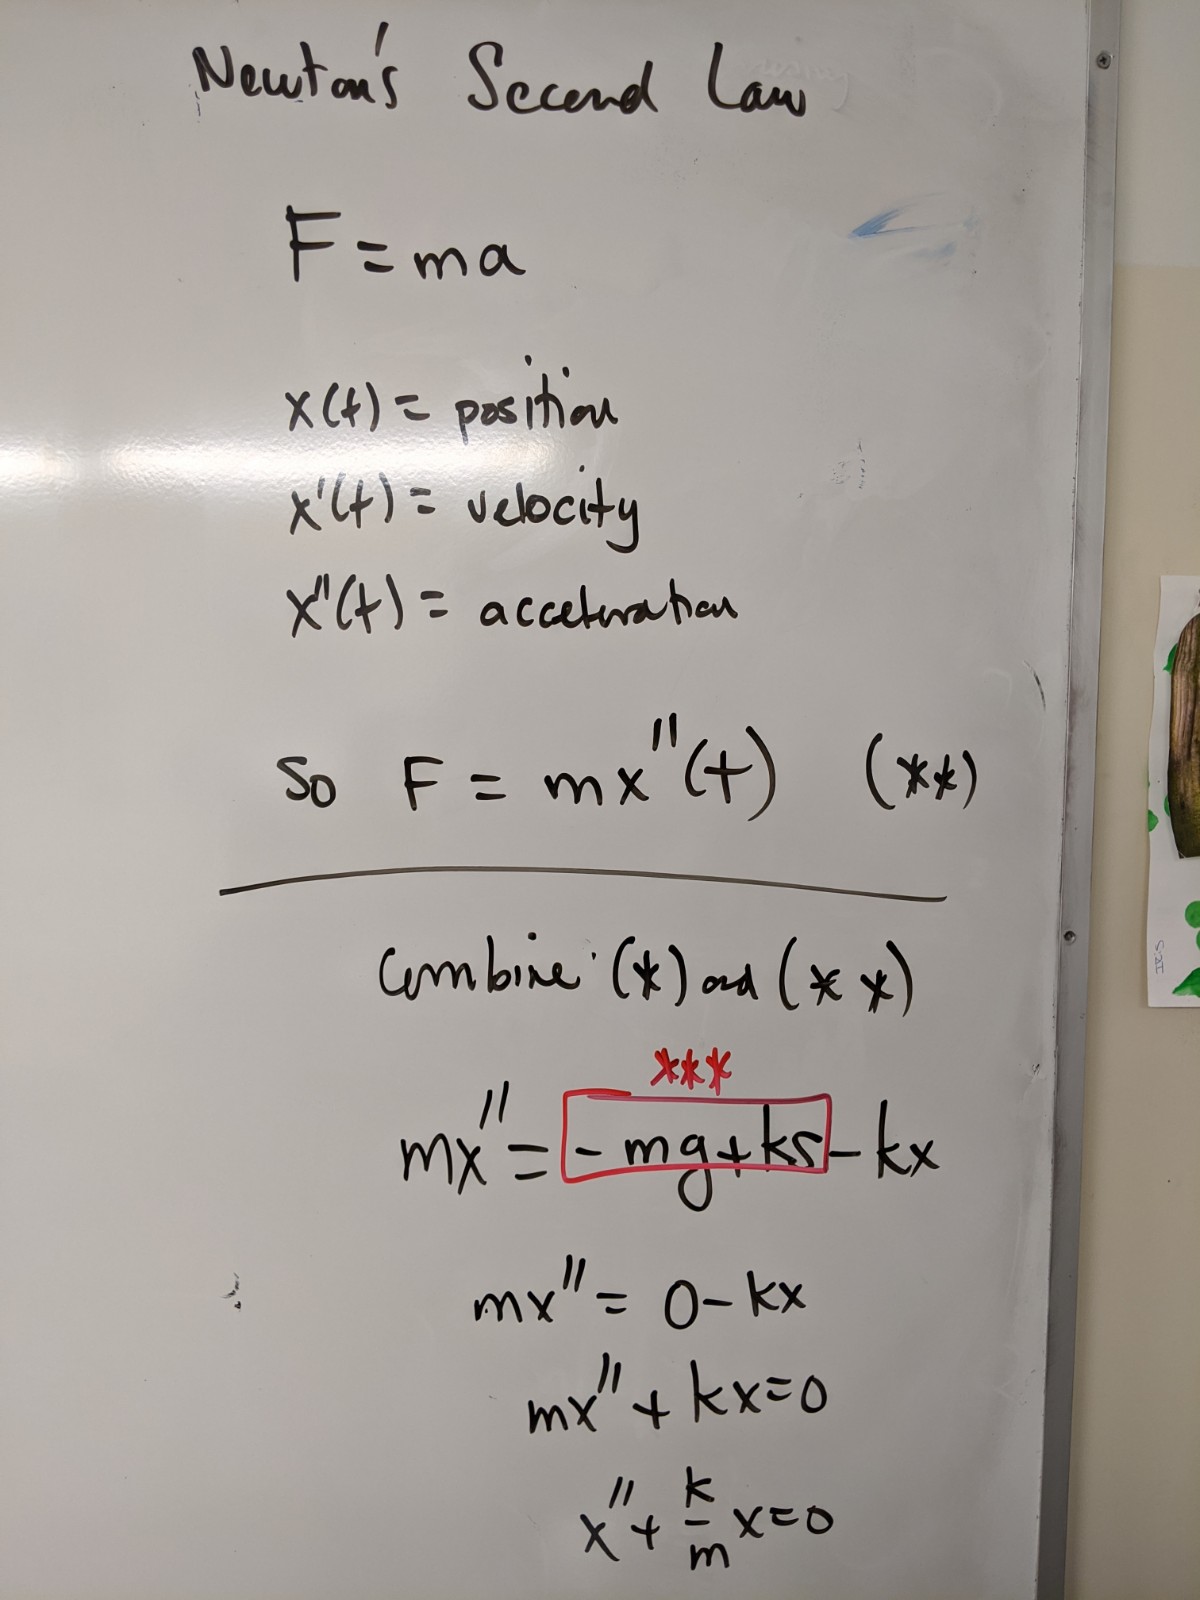 Newton's Second Law
F = ma
x(t) = position
x'(t) = velocity
x''(t) = acceleration
So F = mx''(t) (**)
Combine (*) and (**)
***
mx'' = -mg+ks - kx
mx'' = 0 - kx
mx'' + kx = 0
x'' + k/m x = 0
IRIS